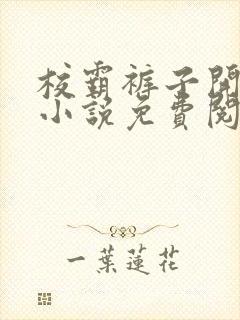 校霸裤子開
小說免費閱
一葉蓮花